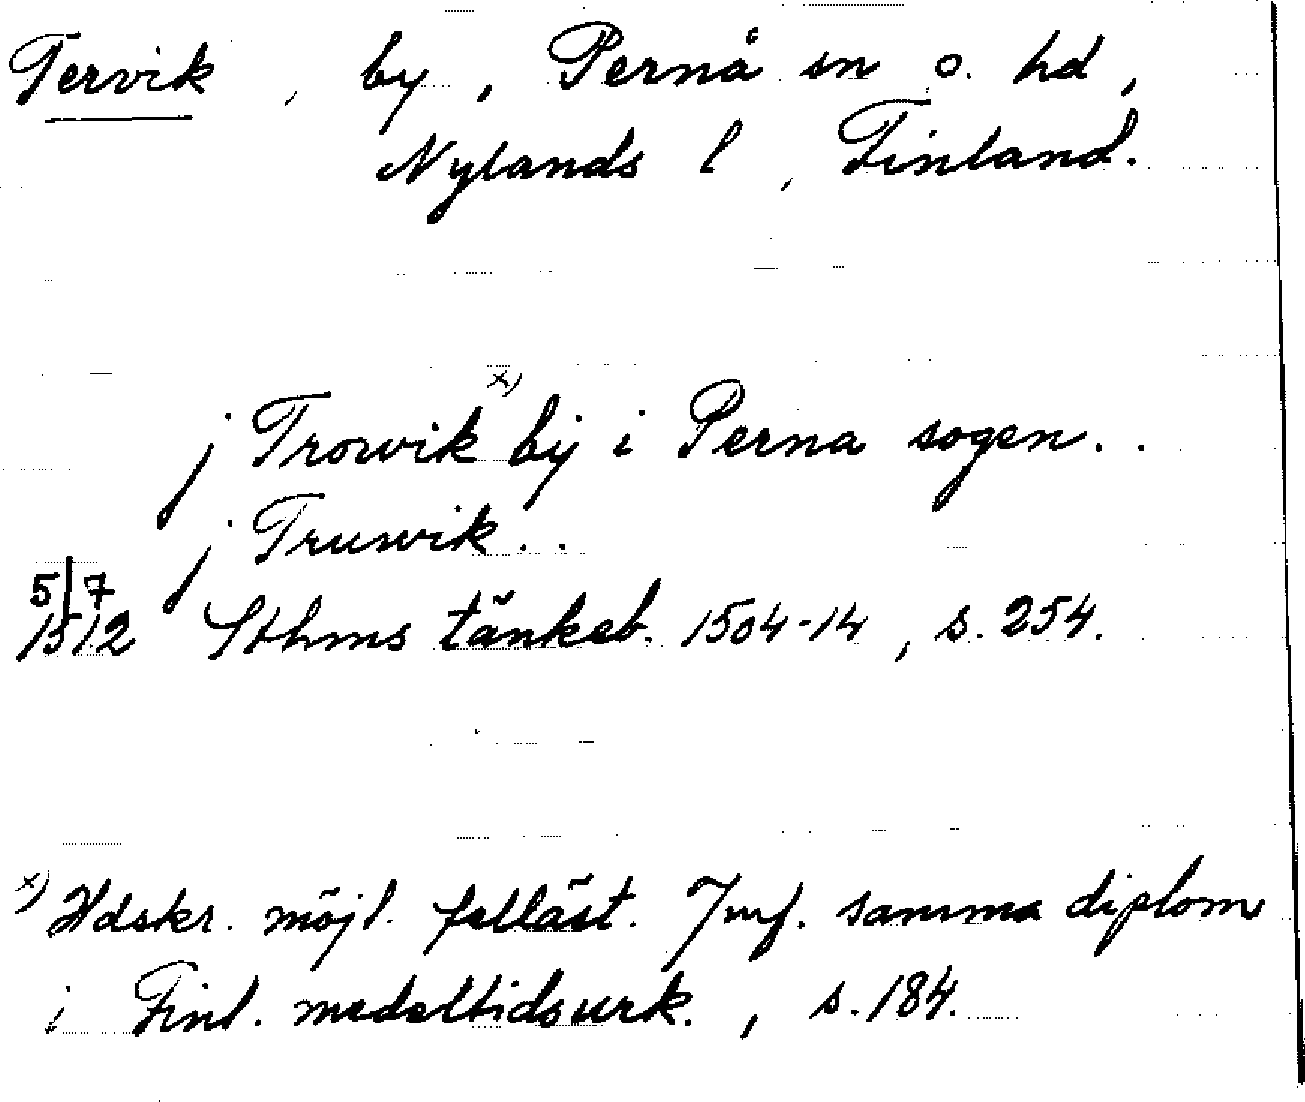 Tervik, by, Pernå sn o. hd,
Nylands l, Finland.
j Trowik x) by i Perna sogen..
j Truwik..
5/7
1512 Sthms tänkeb. 1504-14, s. 254.
x) Hdskr. möjl. felläst. Jmf. samma diplom
i Finl. medeltidsurk., s. 184.